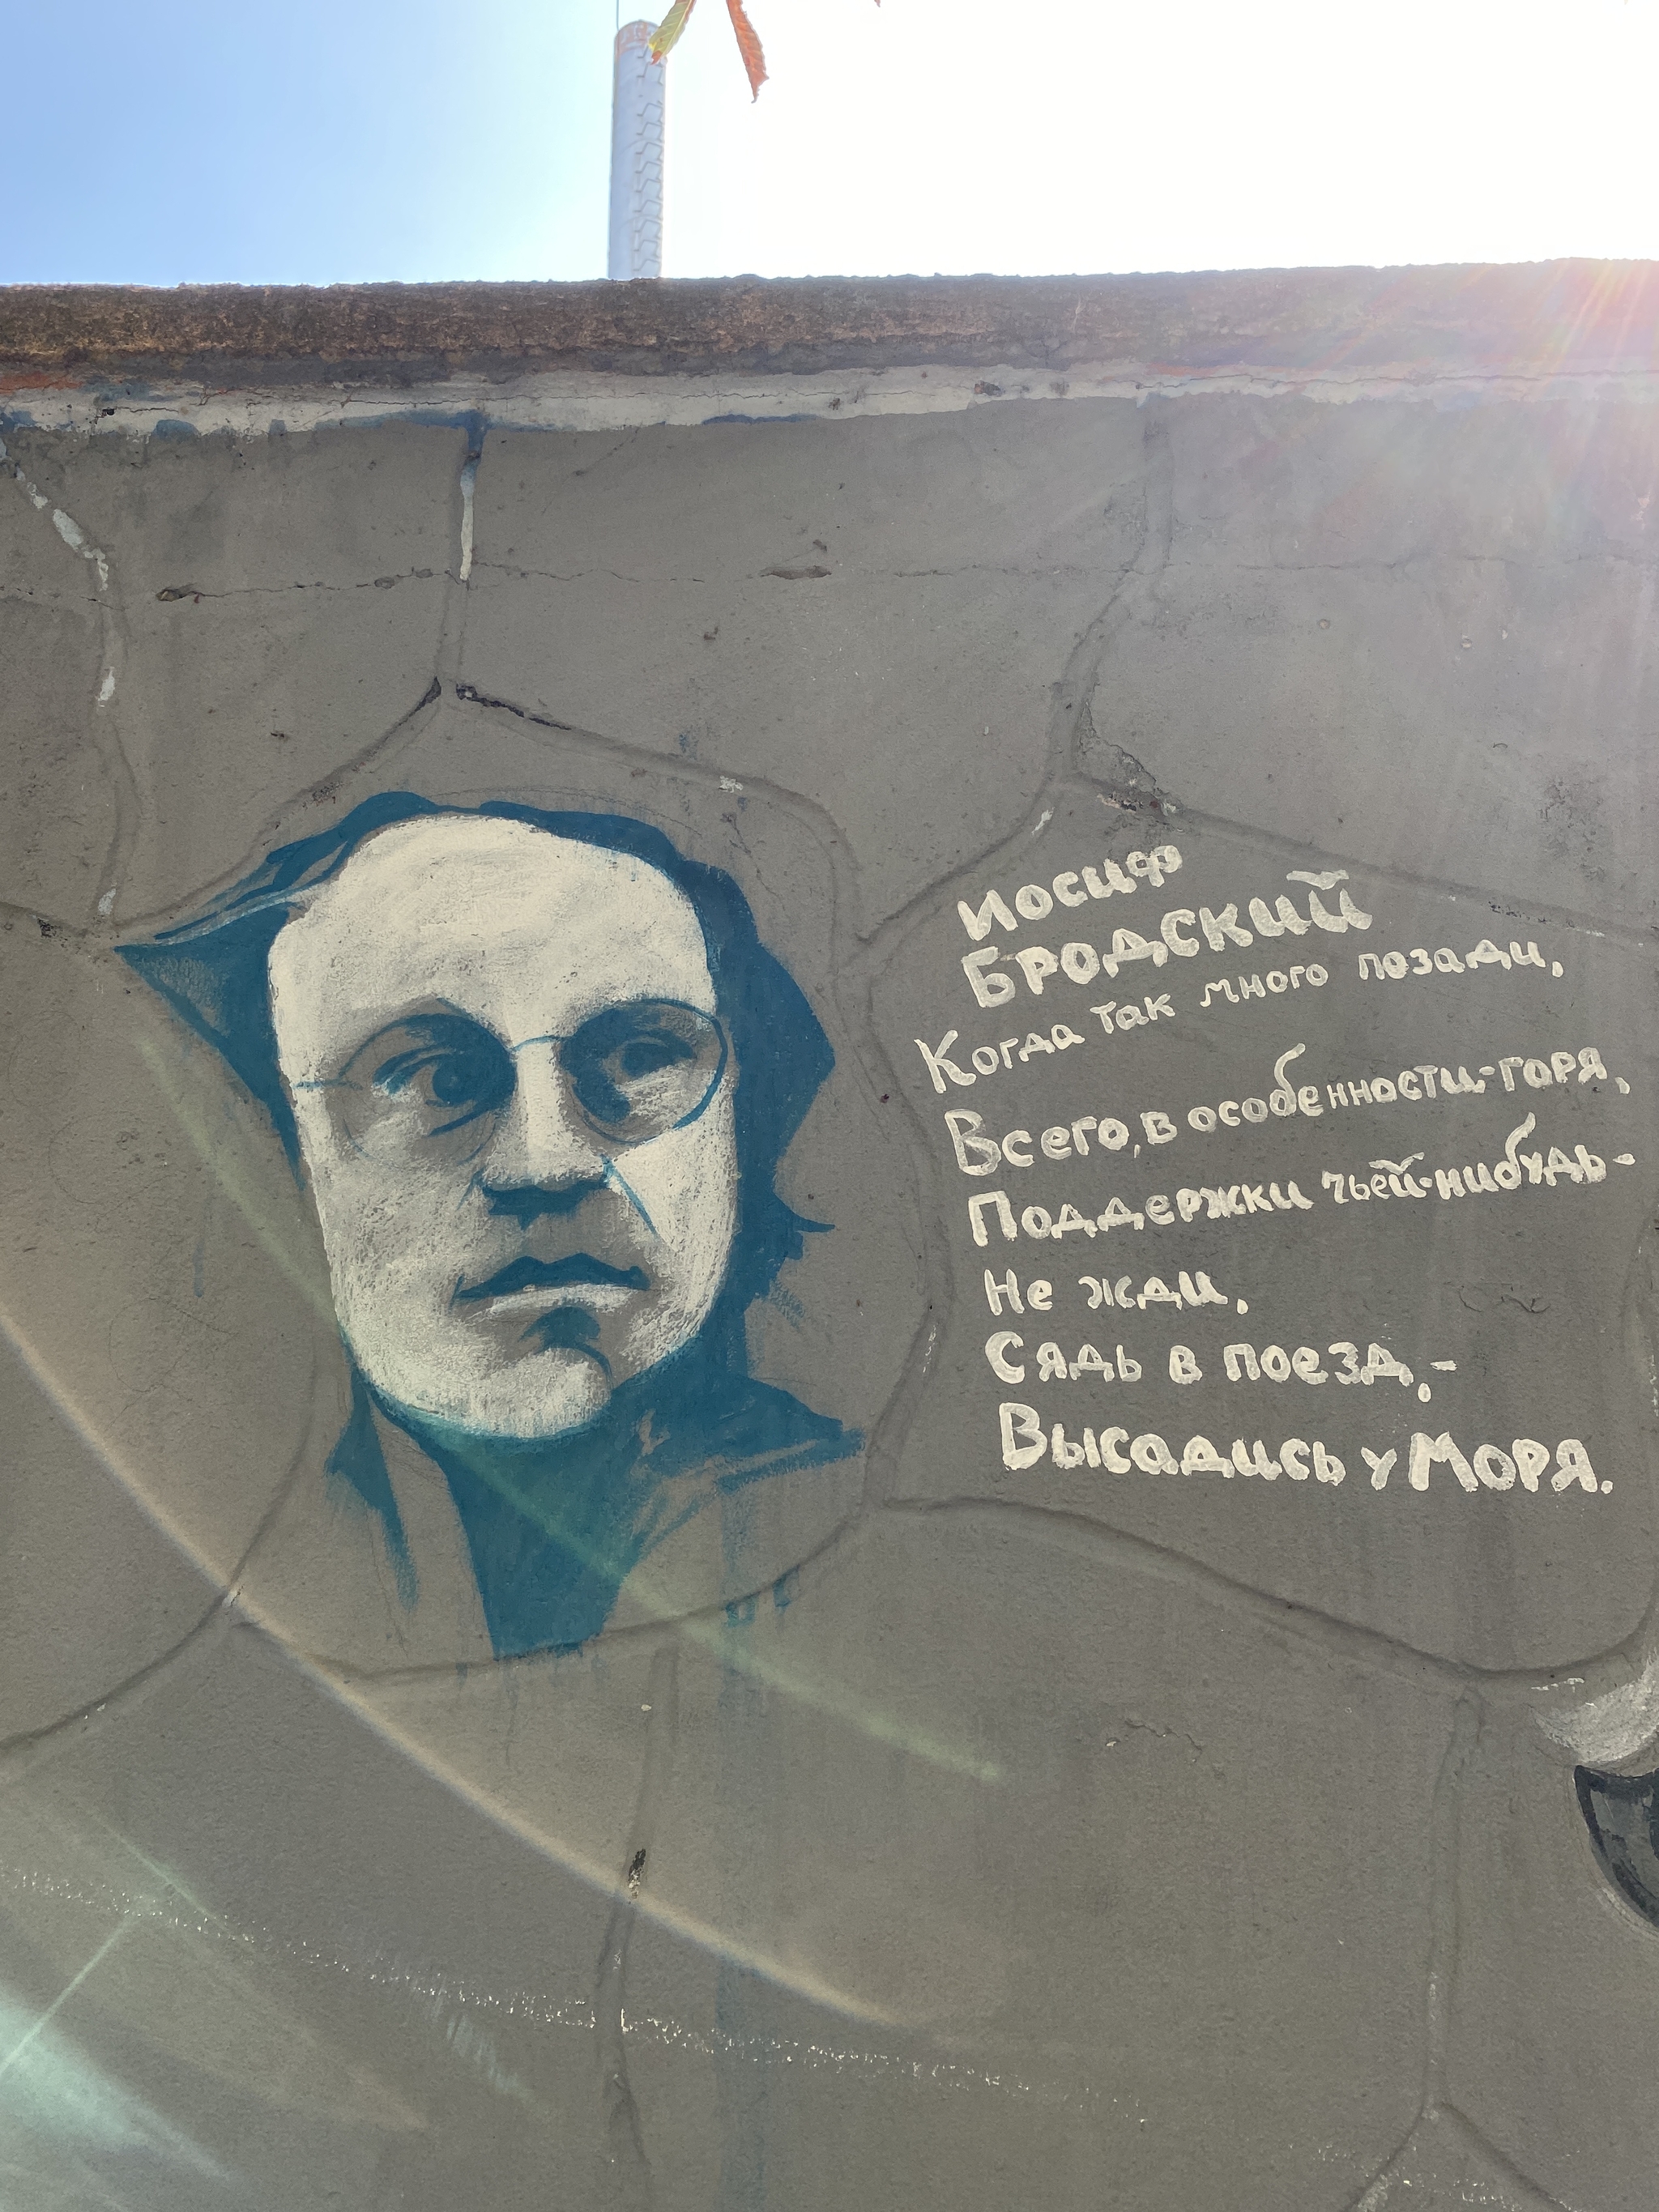 Иосиф
Бродский
Когда так много позади,
Всего, в особенности-горя,
Поддержки чьей-нибудь-
Не жди,
Сядь в поезд,-
Высадись у Моря.